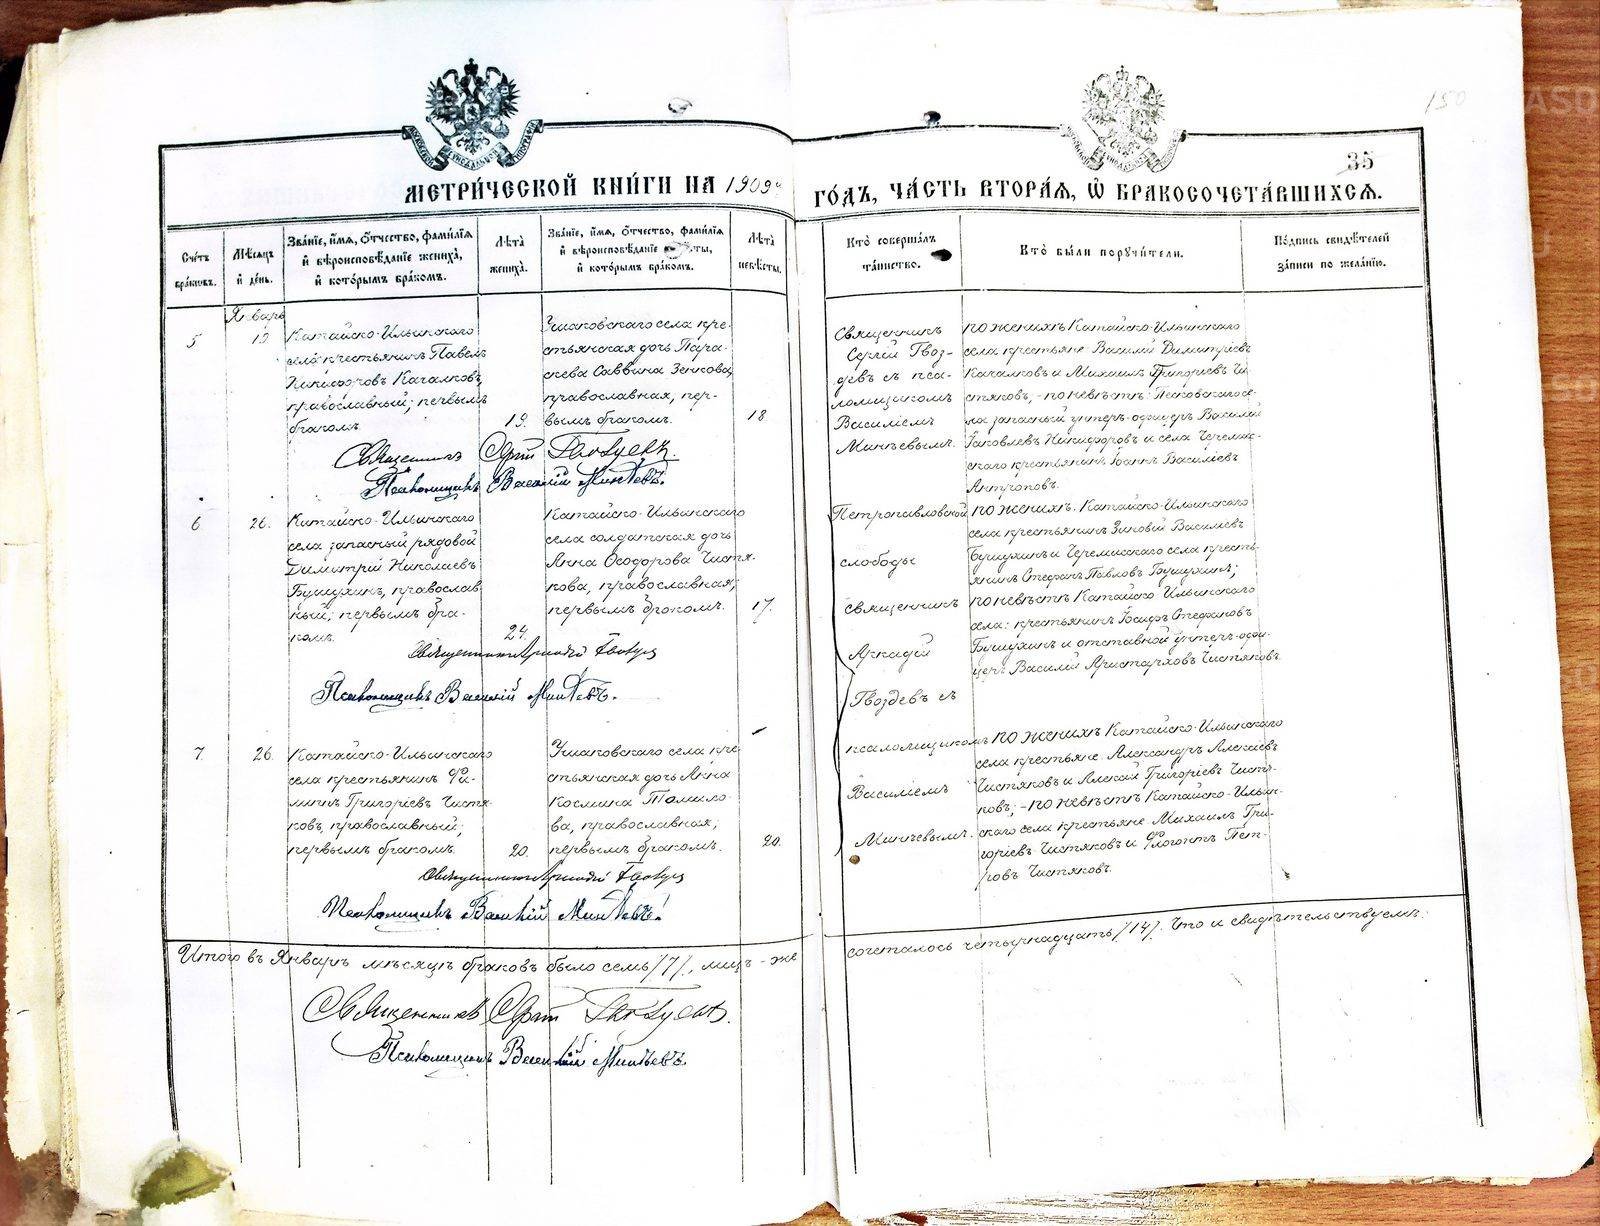 150
35
МЕТРИ́ЧЕСКОЙ КНИ́ГИ НА 1909й
ГО́ДЪ, ЧА́СТЬ ВТОРА́Я, Ѡ БРАКОСОЧЕТА́ВШИХСЯ.
Сче́тъ бра́ковъ.
Мѣ́сяцъ и де́нь.
Зва́нїе, и́мя, о́тчество, фами́лїя
и вѣроисповѣ́данїе жениха́,
и кото́рымъ бра́комъ.
Лѣ́та жениха́.
Зва́нїе, и́мя, о́тчество, фами́лїя
и вѣроисповѣ́данїе
и кото́рымъ бра́комъ.
Лѣ́та невѣ́сты.
Кто̀ соверша́лъ
та́инство.
Кто̀ бы́ли поручи́тели.
По́дпись свидѣ́телей
за́писи по жела́нїю.
Январь
5
19
Катайско-Ильинскаго
села крестьянинъ Павелъ
Никифоровъ Качалковъ,
православный; первымъ
бракомъ.
19.
Ушаковскаго села кре-
стьянская дочь Пара-
скева Саввина Зенкова,
православная, пер-
вымъ бракомъ.
18
Священникъ
Сергій Гвоз-
девъ съ пса-
ломщикомъ
Василіемъ
Минѣевымъ.
по женихѣ Катайско-Ильинскаго
села крестьяне Василій Димитріевъ
Качалковъ и Михаилъ Григоріевъ Чи
стяковъ, - по невѣстѣ: Песковскаго се-
ла запасный унтеръ-офицеръ Василій
Іаковлевъ Никифоровъ и села Черемис-
скаго крестьянинъ Іоаннъ Василіевъ
Антроповъ.
Священникъ Сергій Гвоздевъ.
Псаломщикъ Василій Минѣевъ.
6
26.
Катайско-Ильинскаго
села запасный рядовой
Димитрій Николаевъ
Бушухинъ, православ
ный; первымъ бра-
комъ.
24.
Катайско-Ильинскаго
села солдатская дочь
Анна Ѳеодорова Чистя-
кова, православная;
первымъ бракомъ.
17.
Петропавловской
слободы
священникъ
Аркадій
Гвоздевъ съ
псаломщикомъ
Василіемъ
Минѣевымъ.
по женихѣ. Катайско-Ильинскаго
села крестьянинъ Зиновій Василіевъ
Бушухинъ и Черемисскаго села кресть-
янинъ Стефанъ Павловъ Бушухинъ;
по невѣстѣ Катайско-Ильинскаго
села: крестьянинъ Іосифъ Стефановъ
Бушухинъ и отставной унтеръ-офи-
церъ Василій Аристарховъ Чистяковъ.
Священникъ Аркадій Гвоздевъ
Псаломщикъ Василій Минѣевъ.
7.
26.
Катайско-Ильинскаго
села крестьянинъ Фи-
липпъ Григоріевъ Чистя-
ковъ, православный;
первымъ бракомъ.
20.
Ушаковскаго села кре-
стьянская дочь Анна
Космина Томило-
ва, православная;
первымъ бракомъ.
20.
по женихѣ Катайско-Ильинскаго
села крестьяне Александръ Алексіевъ
Чистяковъ и Алексій Григоріевъ Чистя-
ковъ; - по невѣстѣ Катайско-Ильин-
скаго села крестьяне Михаилъ Гри-
горіевъ Чистяковъ и Флогонтъ Пет-
ровъ Чистяковъ.
Священникъ Аркадій Гвоздевъ
Псаломщикъ Василій Минѣевъ.
Итого въ Январѣ мѣсяцѣ браковъ было семь /7/, лицъ-же
сочеталось четырнадцать /14/. Что и свидѣтельствуемъ:
Священникъ Сергій Гвоздевъ.
Псаломщикъ Василій Минѣевъ.